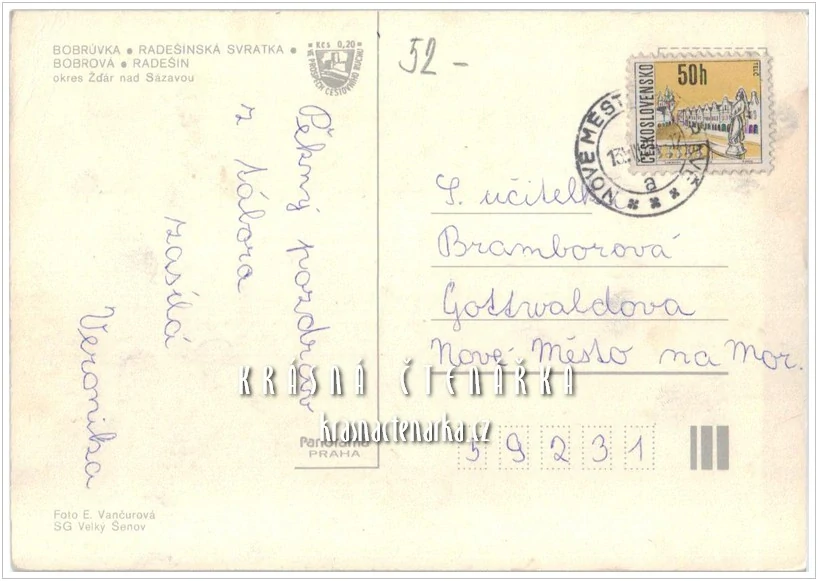 BOBRŮVKA • RADEŠÍNSKÁ SVRATKA •
BOBROVÁ • RADEŠÍN
okres Žďár nad Sázavou
Kčs 0,20
VE PROSPĚCH CESTOVNÍHO RUCHU
52 -
Pěkný pozdrav
z tábora
zasílá
Veronika
ČESKOSLOVENSKO
50h
TELČ
NOVÉ MĚST
a
S. učitelka
Bramborová
Gottwaldova
Nové Město na Mor.
KRÁSNÁ ČTENÁŘKA
krasnactenarka.cz
Panorama
PRAHA
59231
Foto E. Vančurová
SG Velký Šenov